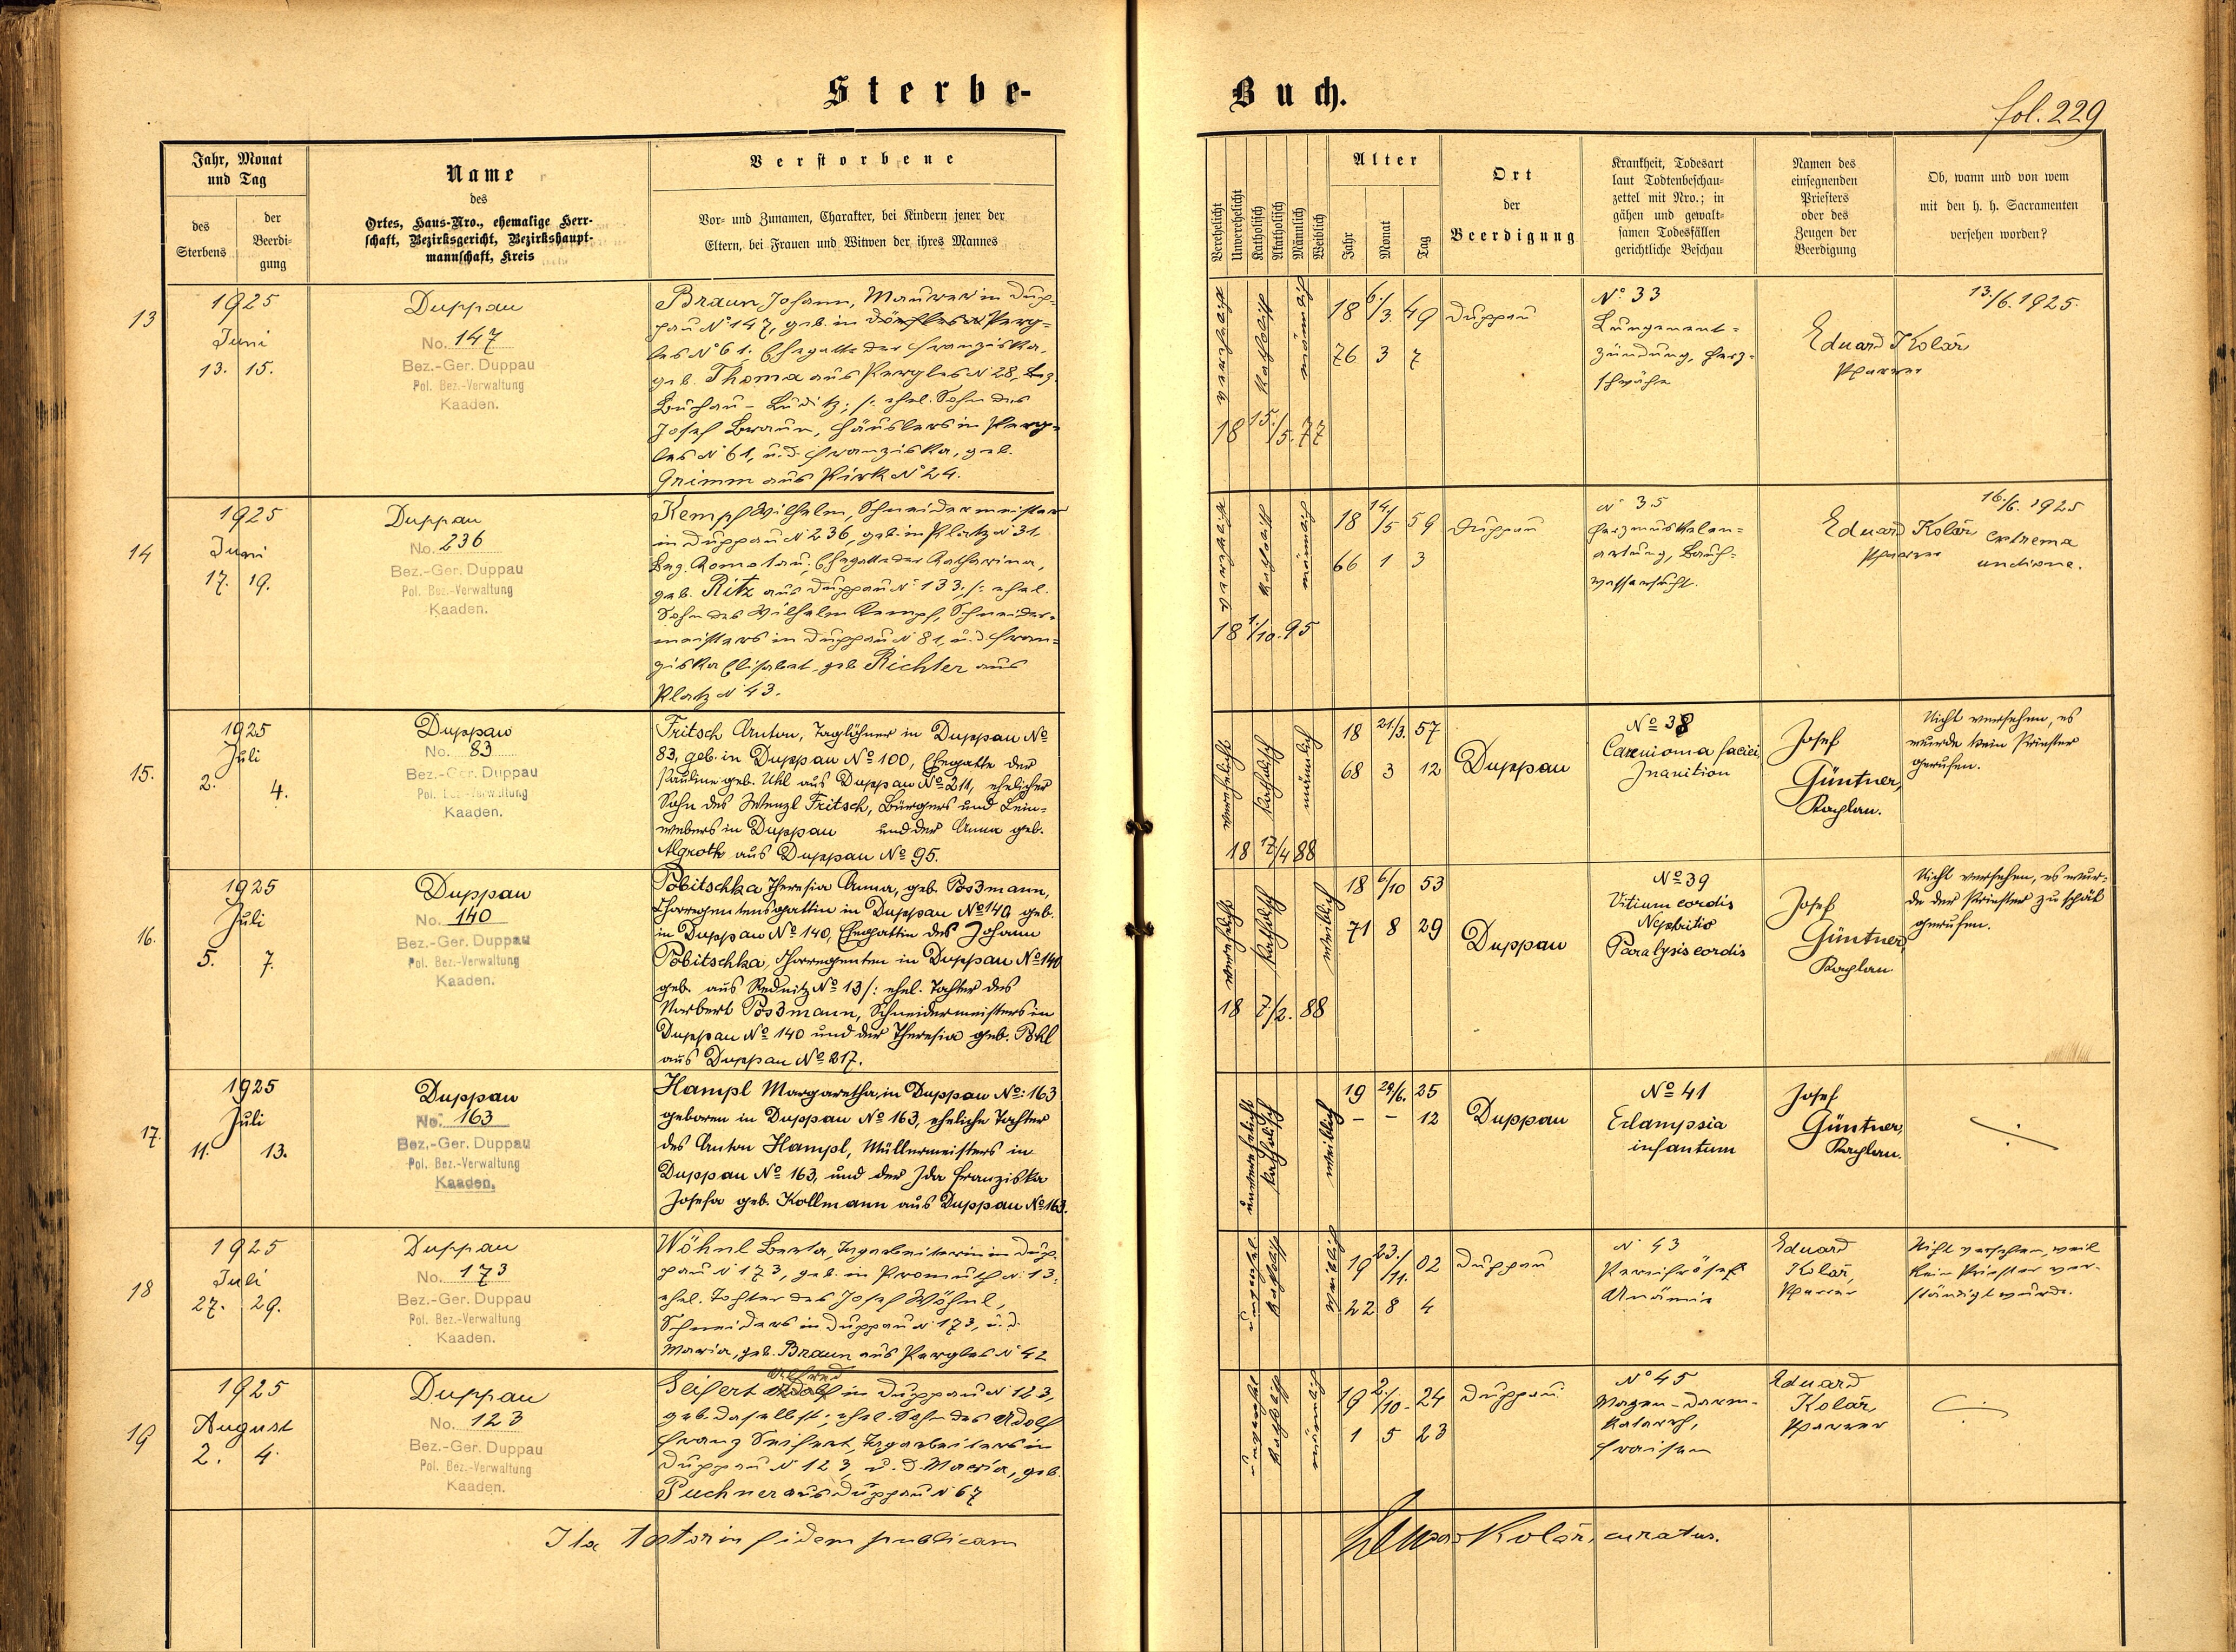 Sterbe-
Buch.
fol. 229
Jahr, Monat
und Tag
des
Sterbens
der
Beerdi-
gung
Name
des
Ortes, Haus-Nro., ehemalige Herr-
schaft, Bezirksgericht, Bezirkshaupt-
mannschaft, Kreis
Verstorbene
Vor- und Zunamen, Charakter, bei Kindern jener der
Eltern, bei Frauen und Witwen der ihres Mannes
Verehelicht
Unverehelicht
Katholisch
Akatholisch
Männlich
Weiblich
Alter
Jahr
Monat
Tag
Ort
der
Beerdigung
Krankheit, Todesart
laut Todtenbeschau-
zettel mit Nro.; in
gähen und gewalt-
samen Todesfällen
gerichtliche Beschau
Namen des
einsegnenden
Priesters
oder des
Zeugen der
Beerdigung
Ob, wann und von wem
mit den h. h. Sacramenten
versehen worden?
13
1925
Juni
13. 15.
Duppau
No. 147
Bez.-Ger. Duppau
Pol. Bez.-Verwaltung
Kaaden.
Braun Johann, Maurer in Dup-
pau N° 147, geb. in Perg-
les N° 61; Ehegatte der Franziska,
geb. Thoma aus Pergles N° 28, Bez.
Buchau - Luditz; /: ehel. Sohn des
Josef Braun, Häuslers in Perg-
les N° 61, u. d. Franziska, geb.
Grimm aus Pirk N° 24.
verehelicht
katholisch
männlich
18 15./5. 77
18 6./3. 49
76 3 7
Duppau
N° 33
Lungenent-
zündung, Herz-
schwäche
Eduard Kolář
Pfarrer
13./6. 1925
14
1925
Juni
17. 19.
Duppau
No. 236
Bez.-Ger. Duppau
Pol. Bez.-Verwaltung
Kaaden.
Kempf Wilhelm, Schneidermeister
in Duppau N° 236, geb. in Platz N° 31,
Bez. Komotau; Ehegatte der Katharina,
geb. Ritz aus Duppau N° 133; /: ehel.
Sohn des Wilhelm Kempf, Schneider-
meisters in Duppau N° 81, u. d. Fran-
ziska Elisabet, geb. Richter aus
Platz N° 43.
verehelicht
katholisch
männlich
18 1./10. 95
18 14/5 59
66 1 3
Duppau
N° 35
Herzmuskelen-
artung, Bauch-
wassersucht.
Eduard Kolář
Pfarrer
16./6. 1925
extrema
unctione.
15.
1925
Juli
2. 4.
Duppau
No. 83
Bez.-Ger. Duppau
Pol. Bez.-Verwaltung
Kaaden.
Fritsch Anton, Taglöhner in Duppau No
83, geb. in Duppau No 100, Ehegatte der
Pauline geb. Uhl aus Duppau No 211, ehelicher
Sohn des Wenzl Fritsch, Bürgers und Lein-
webers in Duppau und der Anna geb.
Algroth aus Duppau No 95.
verehelicht
katholisch
männlich
18 17/4 88
18 21/3. 57
68 3 12
Duppau
No 38
Carcinoma faciei
Inanition
Josef
Güntner,
Kaplan.
Nicht versehen, es
wurde kein Priester
gerufen.
16.
1925
Juli
5. 7.
Duppau
No. 140
Bez.-Ger. Duppau
Pol. Bez.-Verwaltung
Kaaden.
Pobitschka Theresia Anna, geb. Possmann,
Chorregentensgattin in Duppau No 140 geb.
in Duppau No 140, Ehegattin des Johann
Pobitschka, Chorregenten in Duppau No 140
geb. aus Rednitz No 13 /: ehel. Tochter des
Norbert Possmann, Schneidermeisters in
Duppau No 140 und der Theresia geb. Pohl
aus Duppau No 217.
verehelicht
katholisch
weiblich
18 7/2. 88
18 6/10 53
71 8 29
Duppau
No 39
Vitium cordis
Nephritis
Paralysis cordis
Josef
Güntner,
Kaplan
Nicht versehen, es wur-
de der Priester zu spät
gerufen.
17.
1925
Juli
11. 13.
Duppau
No. 163
Bez.-Ger. Duppau
Pol. Bez.-Verwaltung
Kaaden.
Hampl Margaretha, in Duppau No: 163
geboren in Duppau No 163, eheliche Tochter
des Anton Hampl, Müllermeisters in
Duppau No 163, und der Ida Franziska
Josefa geb. Kollmann aus Duppau No 163.
unverehelicht
katholisch
weiblich
19 29/6. 25
- - 12
Duppau
No 41
Eclampsia
infantum
Josef
Güntner,
Kaplan.
18
1925
Juli
27. 29.
Duppau
No. 173
Bez.-Ger. Duppau
Pol. Bez.-Verwaltung
Kaaden.
Wöhnl Berta, Tagarbeiterin in Dup-
pau N° 173, geb. in Promuth N° 13;
ehel. Tochter des Josef Wöhnl,
Schneiders in Duppau N° 173, u. d.
Maria, geb. Braun aus Pergles N° 42
unverehel.
katholisch
weiblich
19 23./11. 02
22 8 4
Duppau
N° 43
Anämie
Eduard
Kolář,
Pfarrer
Nicht versehen, weil
kein Priester ver-
ständigt wurde.
19
1925
August
2. 4.
Duppau
No. 123
Bez.-Ger. Duppau
Pol. Bez.-Verwaltung
Kaaden.
Alfred
Seifert Adolf in Duppau N° 123,
geb. daselbst; ehel. Sohn des Adolf
Franz Seifert, Tagarbeiters in
Duppau N° 123, u. d. Maria, geb.
Puchner aus Duppau N° 67
unverehel.
katholisch
männlich
19 2./10. 24
1 5 23
Duppau
N° 45
Magen-Darm-
katarrh,
Fraisen
Eduard
Kolář,
Pfarrer
Ita testor in fidem publicam
Eduard Kolář, curatus.